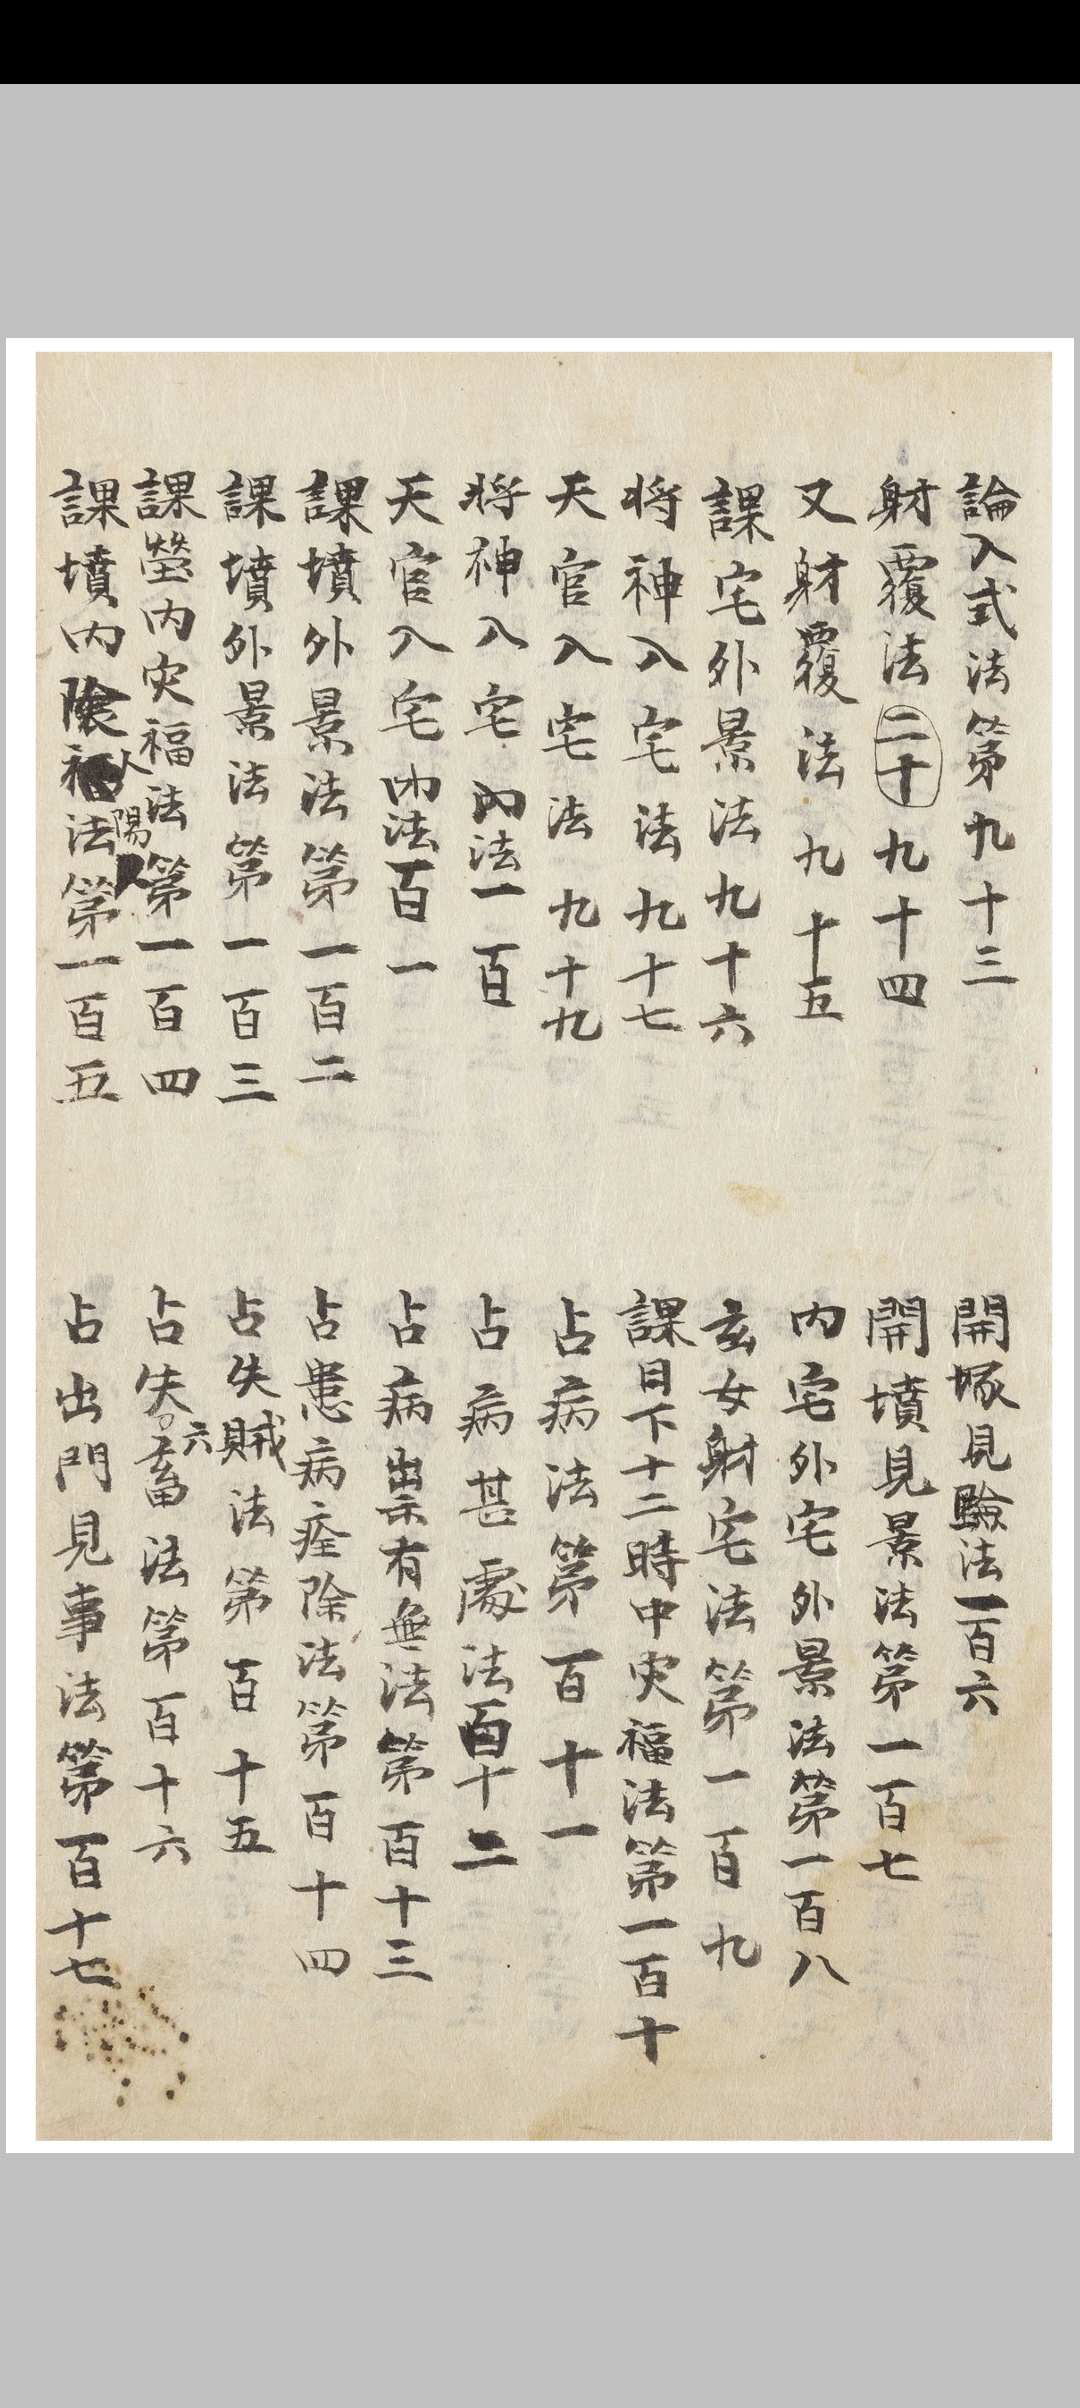 論入式法第九十三
射覆法二十九十四
又射覆法九十五
課宅外景法九十六
将神入宅法九十七
天官入宅法九十九
将神入宅内法一百
天官入宅内法百一
課墳外景法第一百二
課墳外景法第一百三
課塋内灾福法第一百四
課墳内法第一百五
人
陽
開塚見驗法一百六
開墳見景法第一百七
内宅外宅外景法第一百八
玄女射宅法第一百九
課日下十二時中灾福法第一百十
占病法第百十一
占病甚處法百十二
占病祟有無法第百十三
占患病痊除法第百十四
占失賊法第百十五
占失六畜法第百十六
占出門見事法第百十七